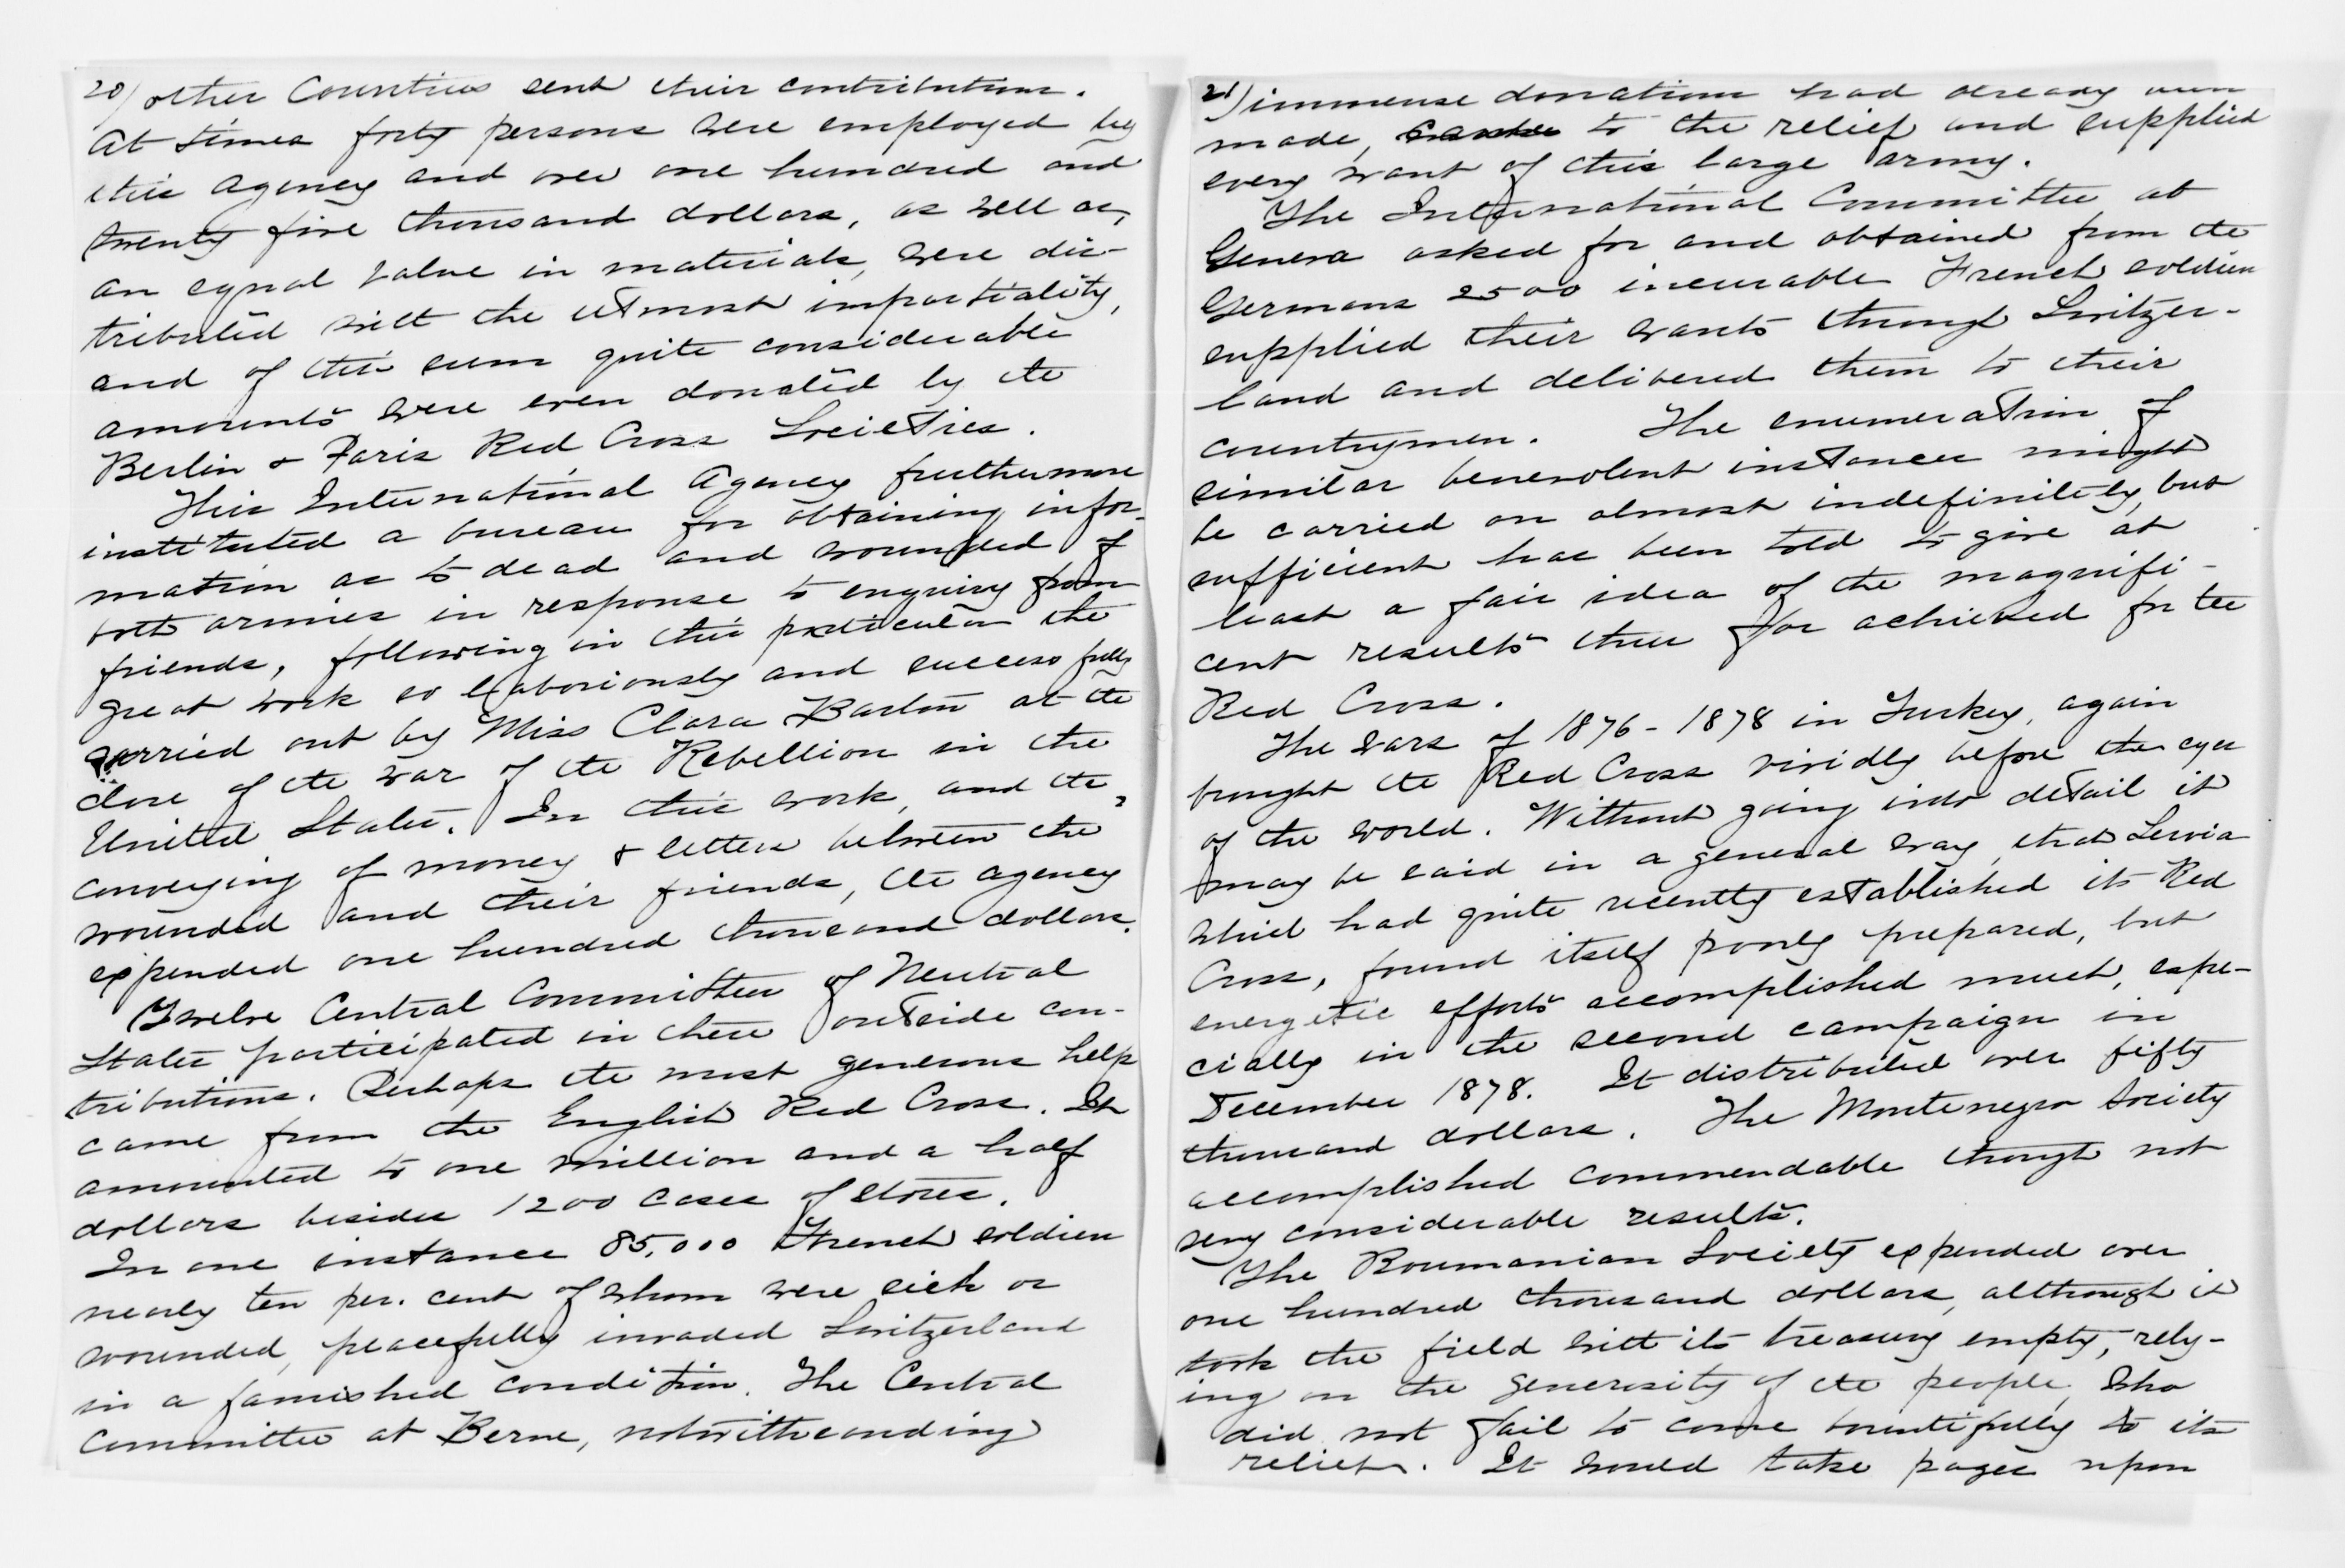 20) other Countries sent their contributions.
At times forty persons were employed by
this Agency and over one hundred and
twenty five thousand dollars, as well as,
an equal value in materials, were dis-
tributed with the utmost impartiality,
and of this sum quite considerable
amounts were even donated by the
Berlin & Paris Red Cross Societies.
This International Agency furthermore
instituted a bureau for obtaining infor-
mation as to dead and wounded of
both armies in response to enquiry from
friends, following in this particular the
great work so laboriously and successfully
carried out by Miss Clara Barton at the
close of the war of the Rebellion in the
United States. In this work, and the,
conveying of money & letters between the
wounded and their friends, the agency
expended one hundred thousand dollars.
Twelve Central Committees of Neutral
States participated in these outside con-
tributions. Perhaps the most generous help
came from the English Red Cross. It
amounted to one million and a half
dollars besides 1200 cases of stores.
In one instance 85,000 French soldiers
nearly ten per. cent of whom were sick or
wounded, peacefully invaded Switzerland
in a famished condition. The Central
Committee at Berne, notwithstanding
21) immense donations had already been
made, to the relief and supplied
every want of this large army.
The International Committee at
Geneva asked for and obtained from the
Germans 2500 incurable French soldiers
supplied their wants through Switzer-
land and delivered them to their
countrymen. The enumeration of
similar benevolent instances might
be carried on almost indefinitely, but
sufficient has been told to give at
least a fair idea of the magnifi-
cent results thus far achieved for the
Red Cross.
The wars of 1876-1878 in Turkey, again
brought the Red Cross vividly before the eyes
of the world. Without going into detail it
may be said in a general way, that Servia
which had quite recently established its Red
Cross, found itself poorly prepared, but
energetic efforts accomplished much, espe-
cially in the second campaign in
December 1878. It distributed over fifty
thousand dollars. The Montenegro Society
accomplished commendable though not
very considerable results.
The Roumanian Society expended over
one hundred thousand dollars, although it
took the field with its treasury empty, rely-
ing on the generosity of the people, who
did not fail to come bountifully to its
relief. It would take pages upon